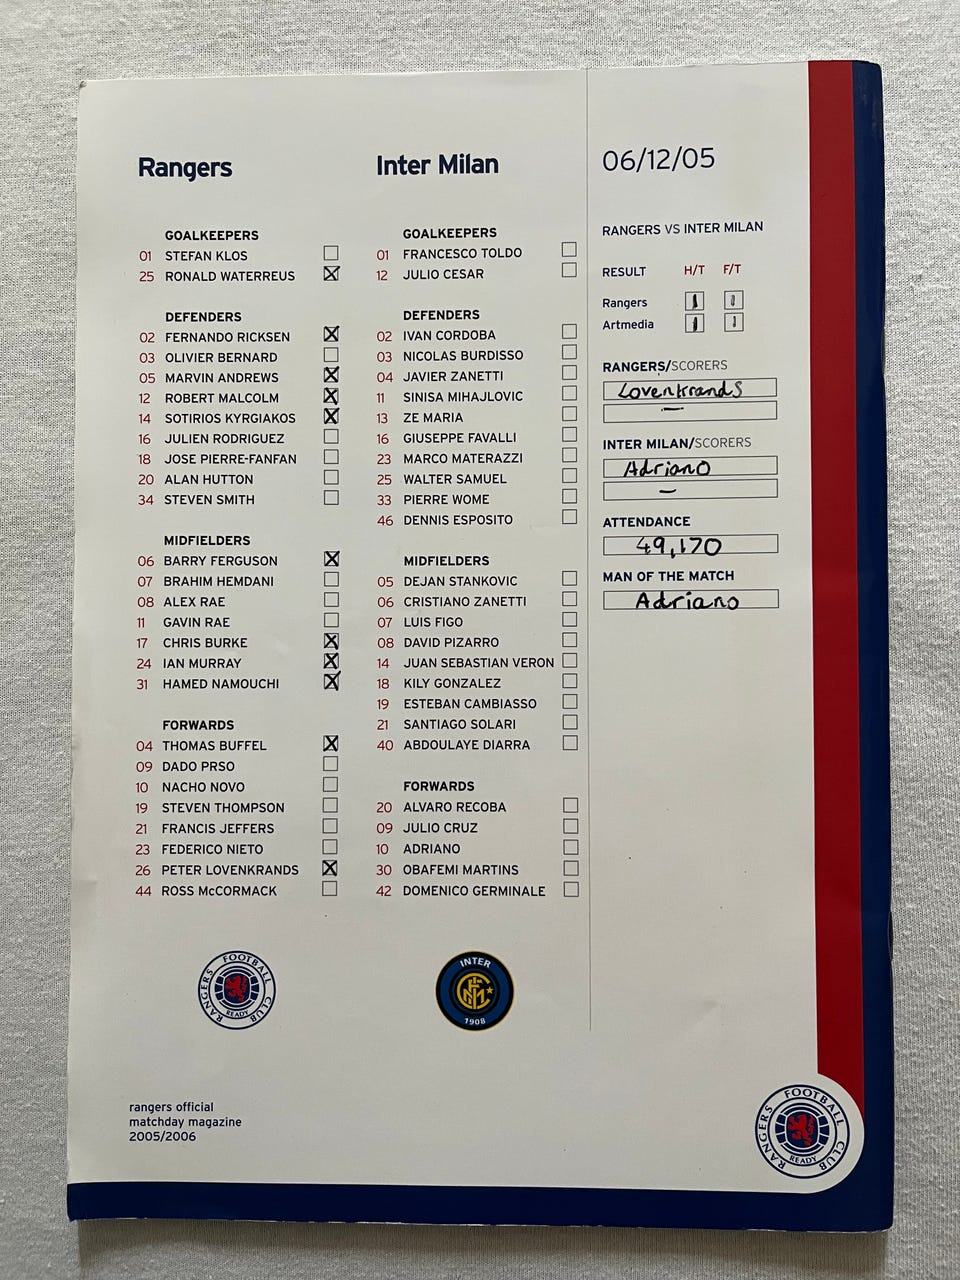 Rangers
GOALKEEPERS
01 STEFAN KLOS
25 RONALD WATERREUS
DEFENDERS
02 FERNANDO RICKSEN
03 OLIVIER BERNARD
05 MARVIN ANDREWS
12 ROBERT MALCOLM
14 SOTIRIOS KYRGIAKOS
16 JULIEN RODRIGUEZ
18 JOSE PIERRE-FANFAN
20 ALAN HUTTON
34 STEVEN SMITH
MIDFIELDERS
06 BARRY FERGUSON
07 BRAHIM HEMDANI
08 ALEX RAE
11 GAVIN RAE
17 CHRIS BURKE
24 IAN MURRAY
31 HAMED NAMOUCHI
FORWARDS
04 THOMAS BUFFEL
09 DADO PRSO
10 NACHO NOVO
19 STEVEN THOMPSON
21 FRANCIS JEFFERS
23 FEDERICO NIETO
26 PETER LOVENKRANDS
44 ROSS McCORMACK
RANGERS FOOTBALL CLUB
READY
rangers official
matchday magazine
2005/2006
Inter Milan
GOALKEEPERS
01 FRANCESCO TOLDO
12 JULIO CESAR
DEFENDERS
02 IVAN CORDOBA
03 NICOLAS BURDISSO
04 JAVIER ZANETTI
11 SINISA MIHAJLOVIC
13 ZE MARIA
16 GIUSEPPE FAVALLI
23 MARCO MATERAZZI
25 WALTER SAMUEL
33 PIERRE WOME
46 DENNIS ESPOSITO
MIDFIELDERS
05 DEJAN STANKOVIC
06 CRISTIANO ZANETTI
07 LUIS FIGO
08 DAVID PIZARRO
14 JUAN SEBASTIAN VERON
18 KILY GONZALEZ
19 ESTEBAN CAMBIASSO
21 SANTIAGO SOLARI
40 ABDOULAYE DIARRA
FORWARDS
20 ALVARO RECOBA
09 JULIO CRUZ
10 ADRIANO
30 OBAFEMI MARTINS
42 DOMENICO GERMINALE
INTER
1908
06/12/05
RANGERS VS INTER MILAN
RESULT H/T F/T
Rangers 1 1
Artmedia 1 1
RANGERS/SCORERS
Lovenkrands
—
INTER MILAN/SCORERS
Adriano
—
ATTENDANCE
49,170
MAN OF THE MATCH
Adriano
RANGERS FOOTBALL CLUB
READY